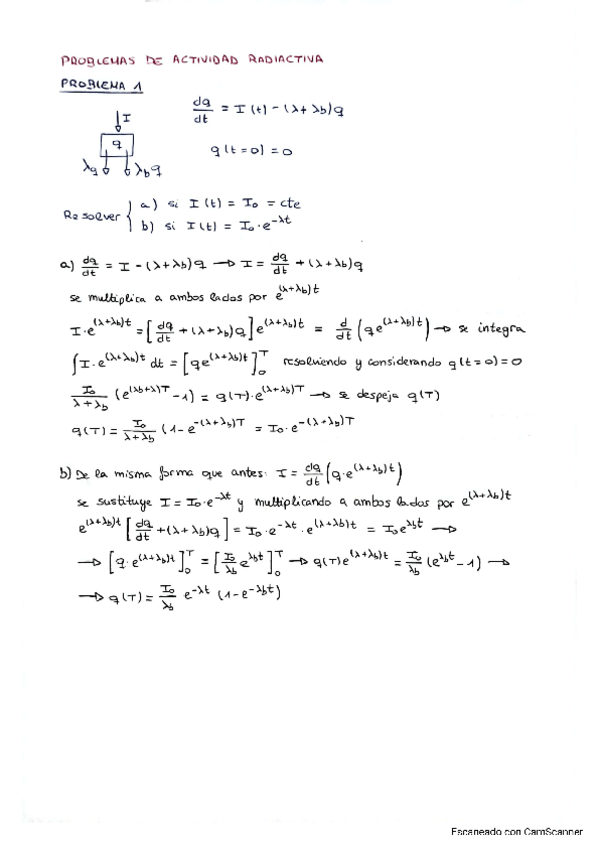 PROBLEMAS DE ACTIVIDAD RADIACTIVA
PROBLEMA 1
I
q
λq λbq
dq/dt = I(t) - (λ+λb)q
q(t=0)=0
Resolver { a) si I(t) = I₀ = cte
b) si I(t) = I₀·e^(-λt)
a) dq/dt = I - (λ+λb)q → I = dq/dt + (λ+λb)q
se multiplica a ambos lados por e^(λ+λb)t
I·e^(λ+λb)t = [dq/dt + (λ+λb)q]e^(λ+λb)t = d/dt (qe^(λ+λb)t) → se integra
∫I·e^(λ+λb)t dt = [qe^(λ+λb)t]₀^T resolviendo y considerando q(t=0)=0
I₀/(λ+λb) (e^(λb+λ)T - 1) = q(T)·e^(λ+λb)T → se despeja q(T)
q(T) = I₀/(λ+λb) (1-e^-(λ+λb)T = I₀·e^-(λ+λb)T
b) De la misma forma que antes: I = dq/dt (q·e^(λ+λb)t)
se sustituye I = I₀·e^-λt y multiplicando a ambos lados por e^(λ+λb)t
e^(λ+λb)t [dq/dt + (λ+λb)q] = I₀·e^-λt · e^(λ+λb)t = I₀e^λbt →
→ [q·e^(λ+λb)t]₀^T = [I₀/λb e^λbt]₀^T → q(T)e^(λ+λb)t = I₀/λb (e^λbt - 1) →
→ q(T) = I₀/λb e^-λt (1-e^-λbt)
Escaneado con CamScanner